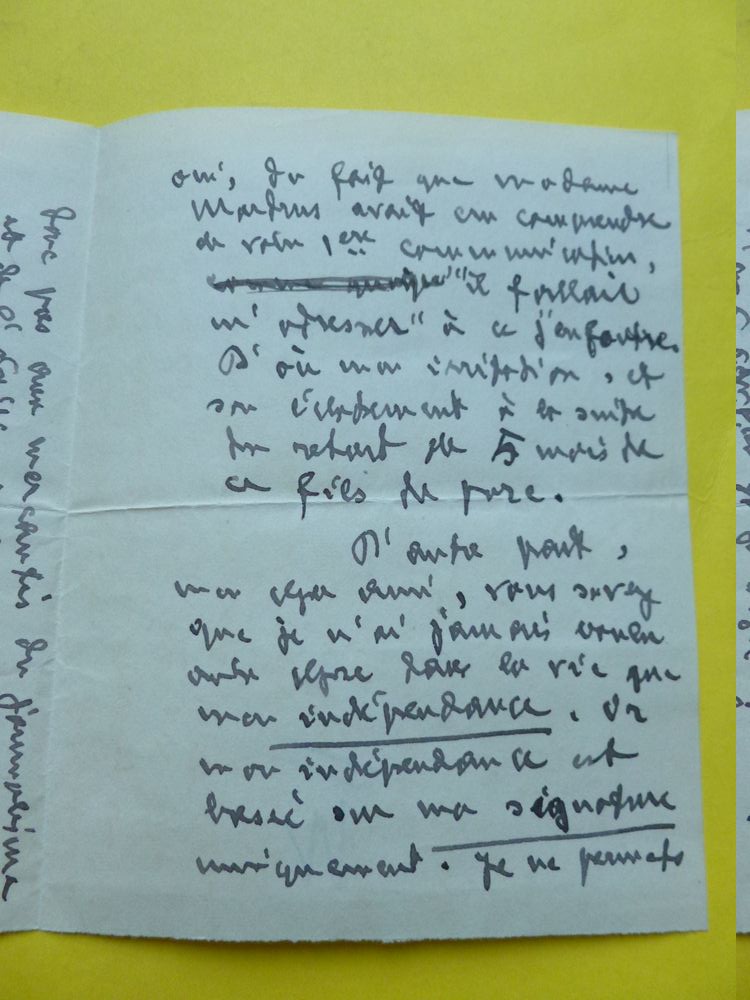 oui, du fait que madame
Mardrus avait cru comprendre
de votre 1ere communication,
"il fallait
m'adresser" à ce j'enfoutre.
D'où mon irritation, et
son éclatement à la suite
du retard de 5 mois de
ce fils de pure.
D'autre part,
mon cher ami, vous savez
que je n'ai jamais voulu
autre chose dans la vie que
mon indépendance. Or
mon indépendance est
basée sur ma signature
uniquement. Je ne permets
donc pas aux mercantis du journalisme
et de l'